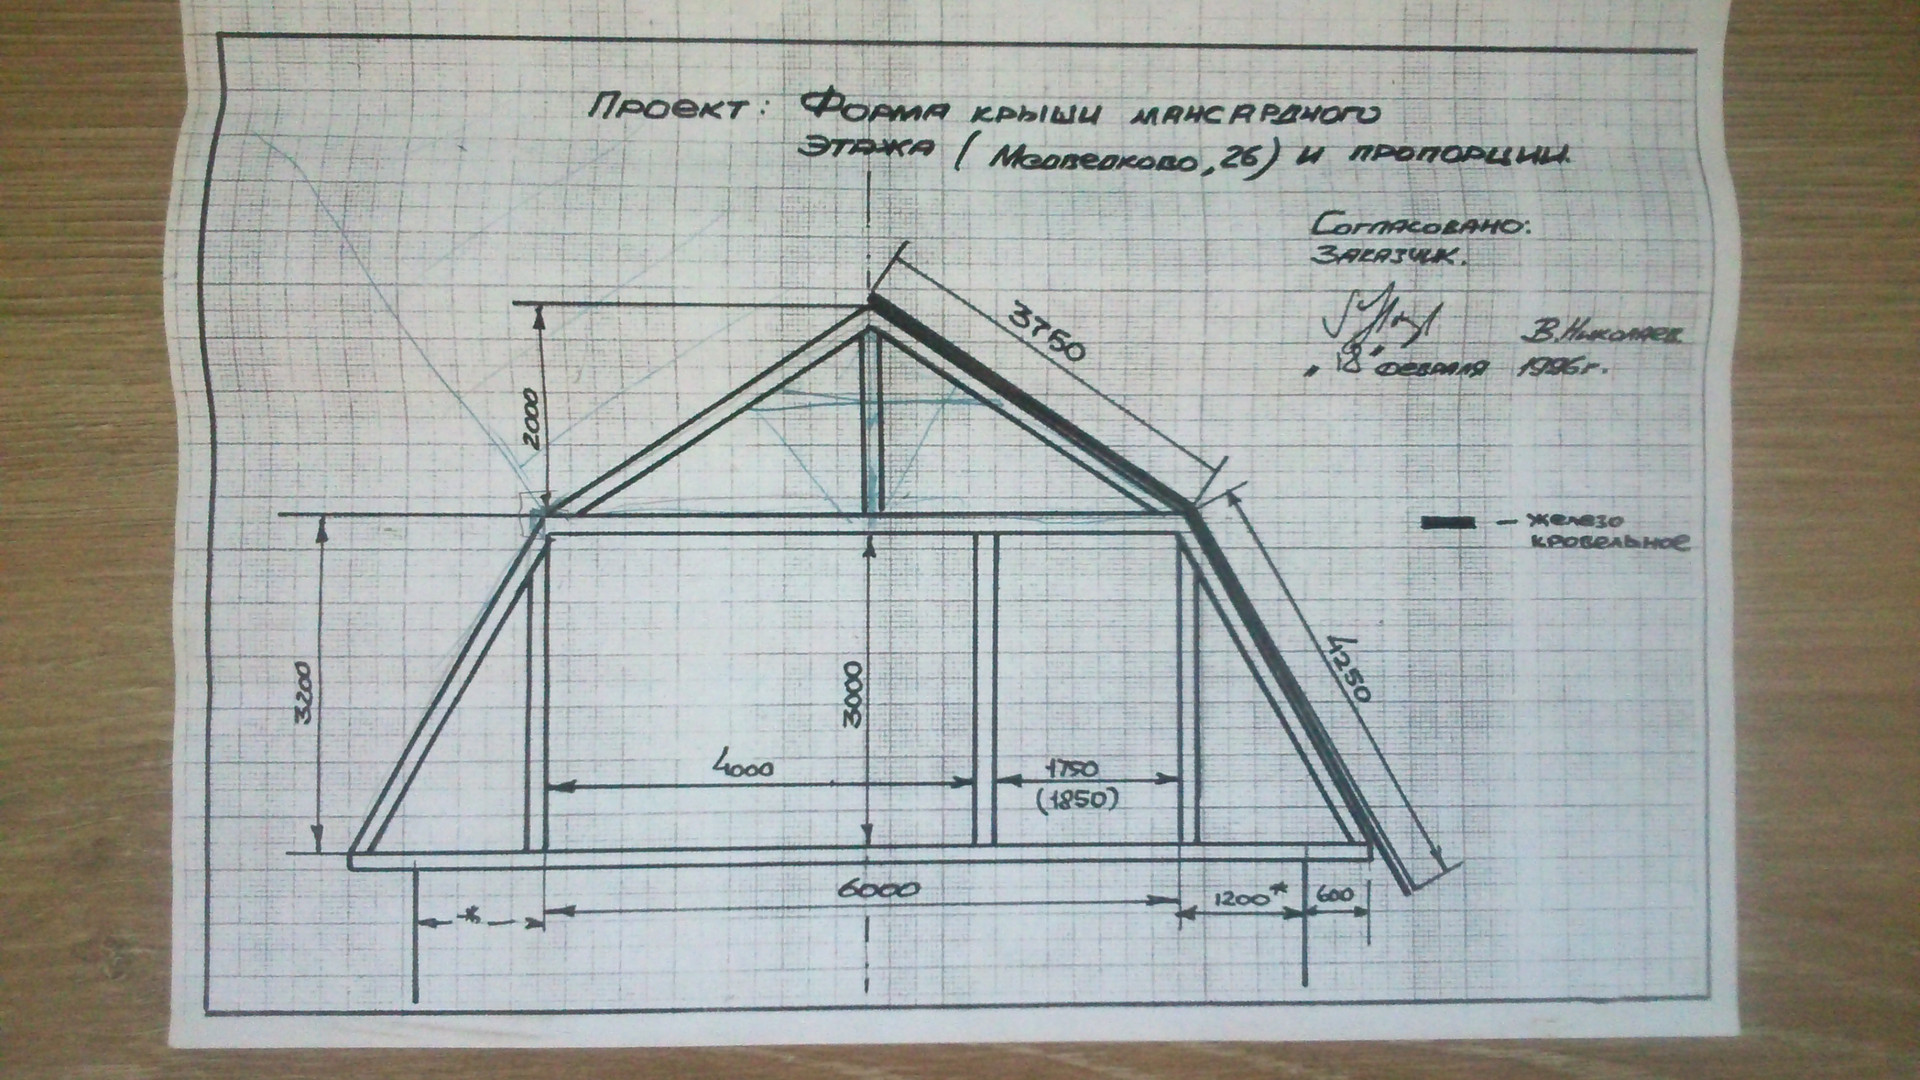 Проект: Форма крыши мансардного
этажа (Медведково, 26) и пропорции.
Согласовано:
Заказчик.
В. Николаев
"18" февраля 1996г.
3750
2000
4250
— железо
кровельное
3200
3000
4000
1750
(1850)
6000
1200*
600
*